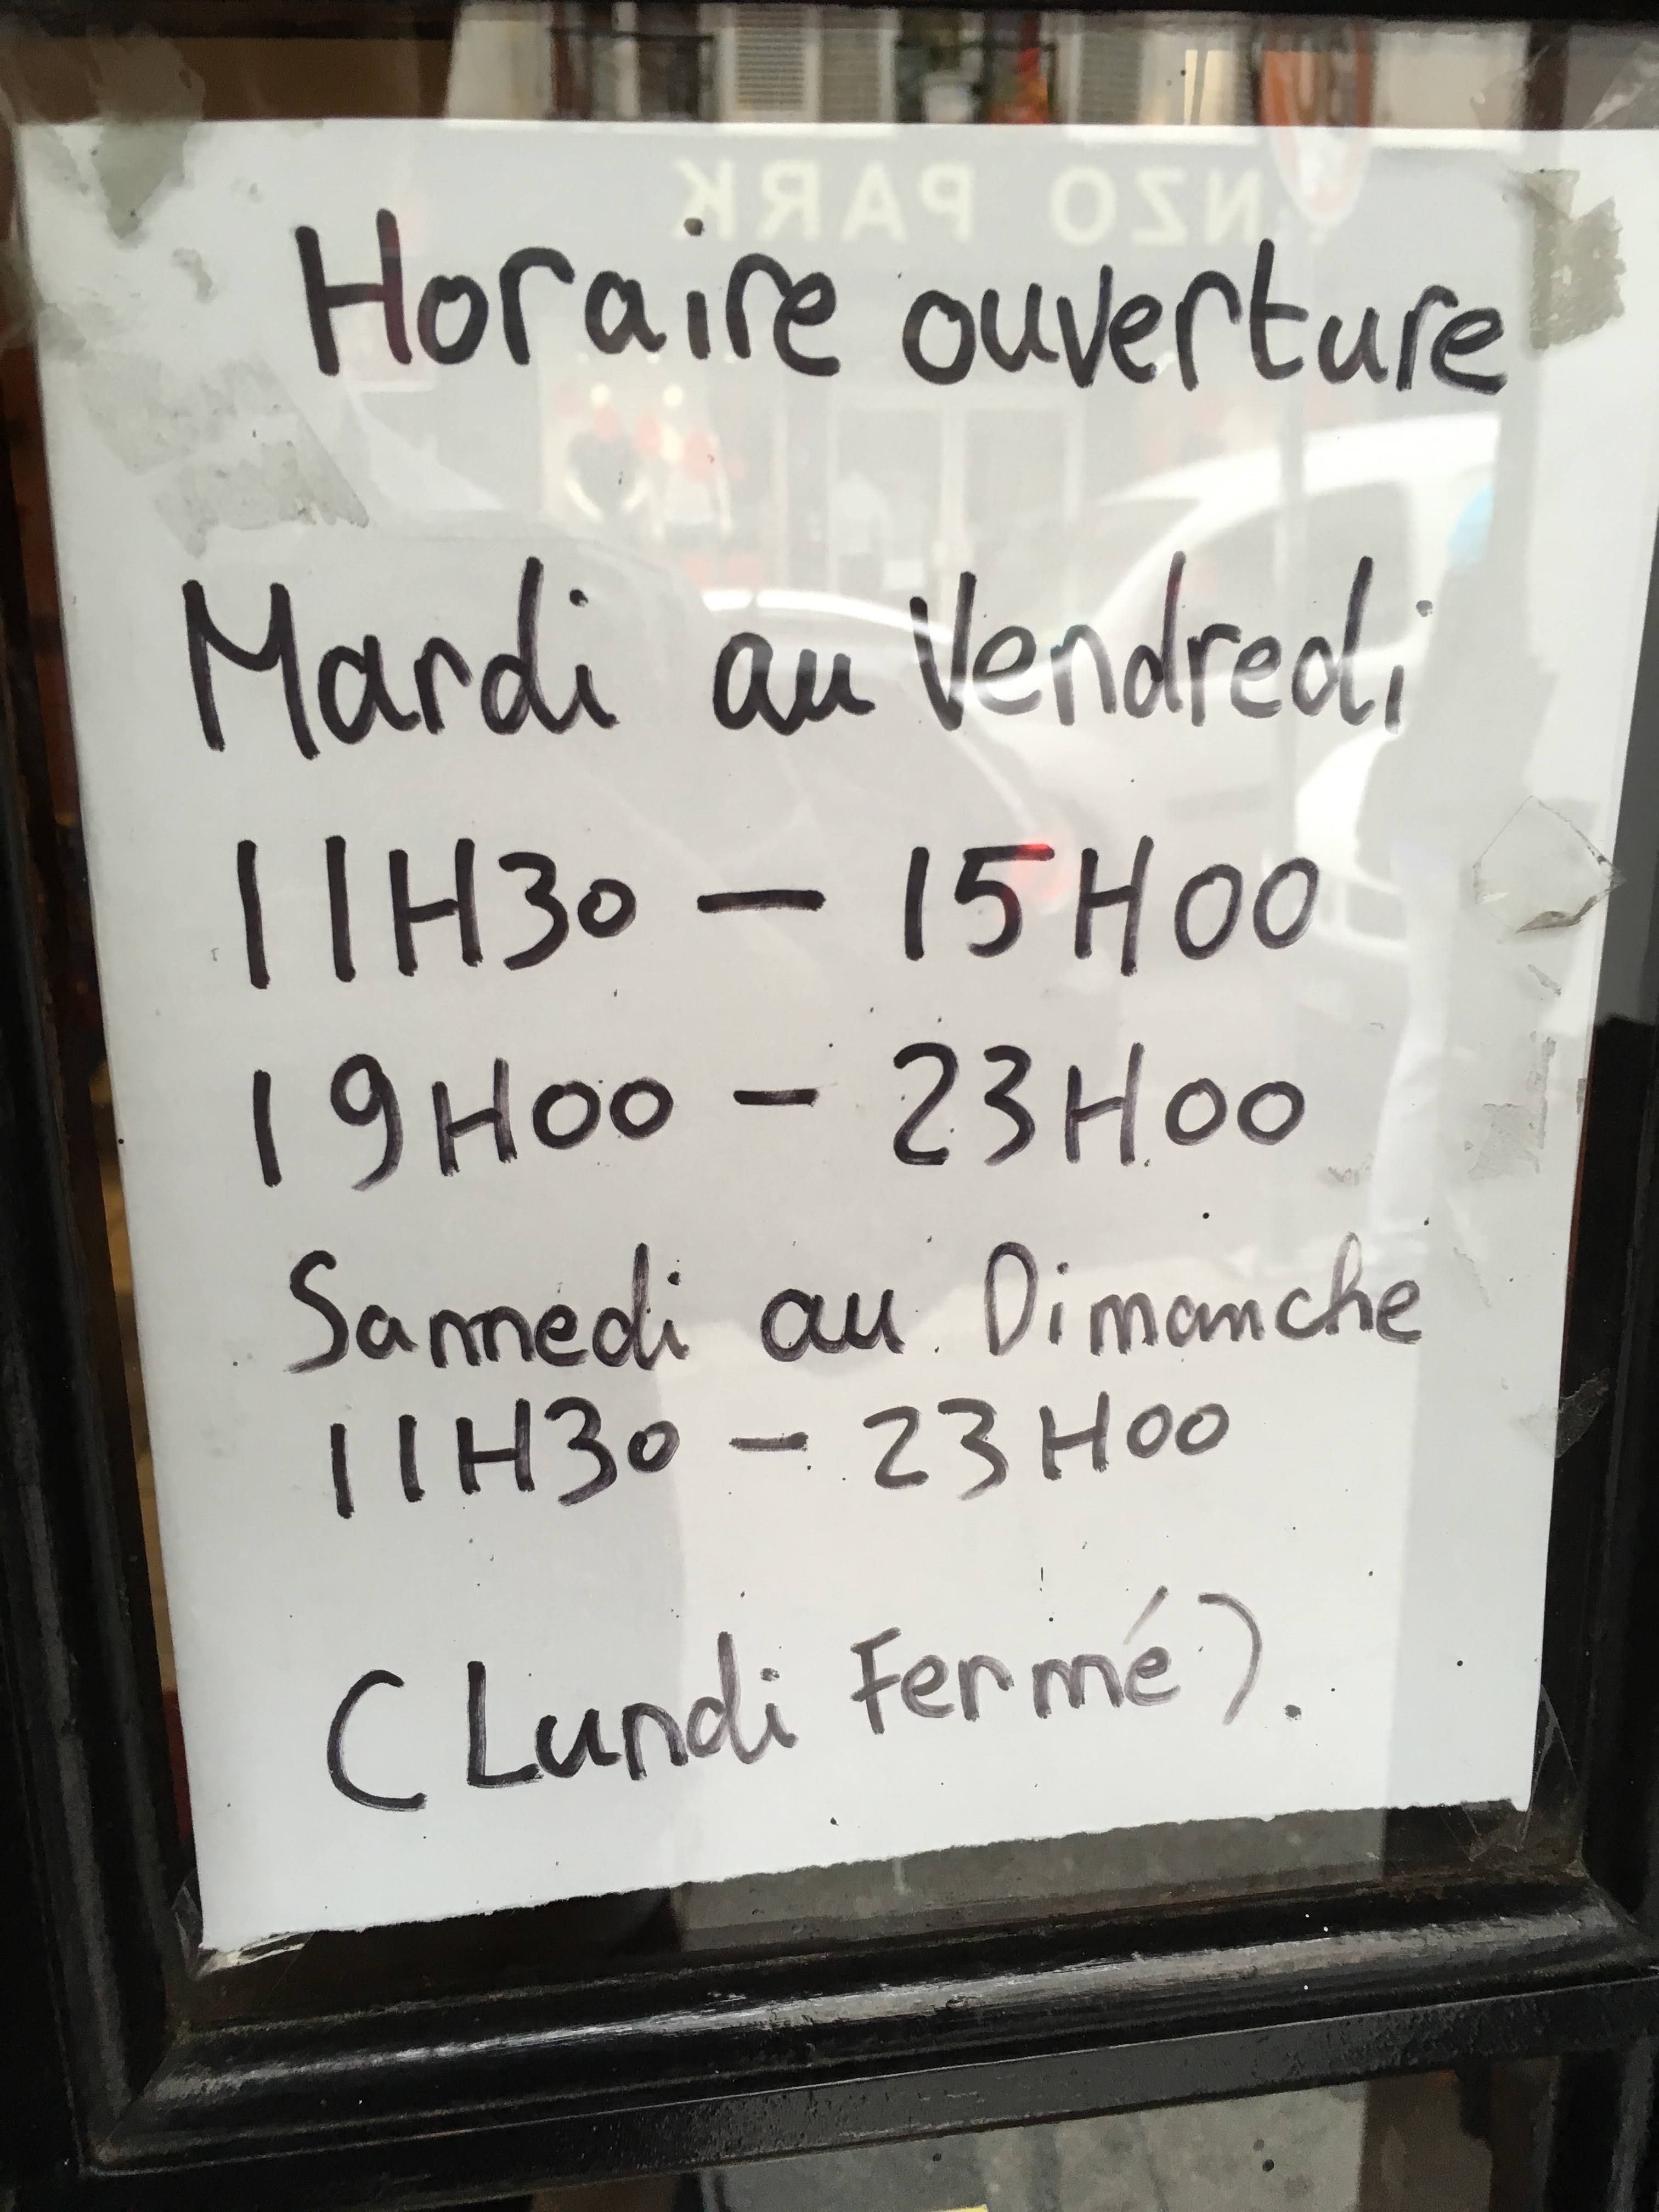 NZO PARK
Horaire ouverture
Mardi au Vendredi
11H30 — 15H00
19H00 - 23H00
Samedi au Dimanche
11H30 - 23H00
(Lundi Fermé).